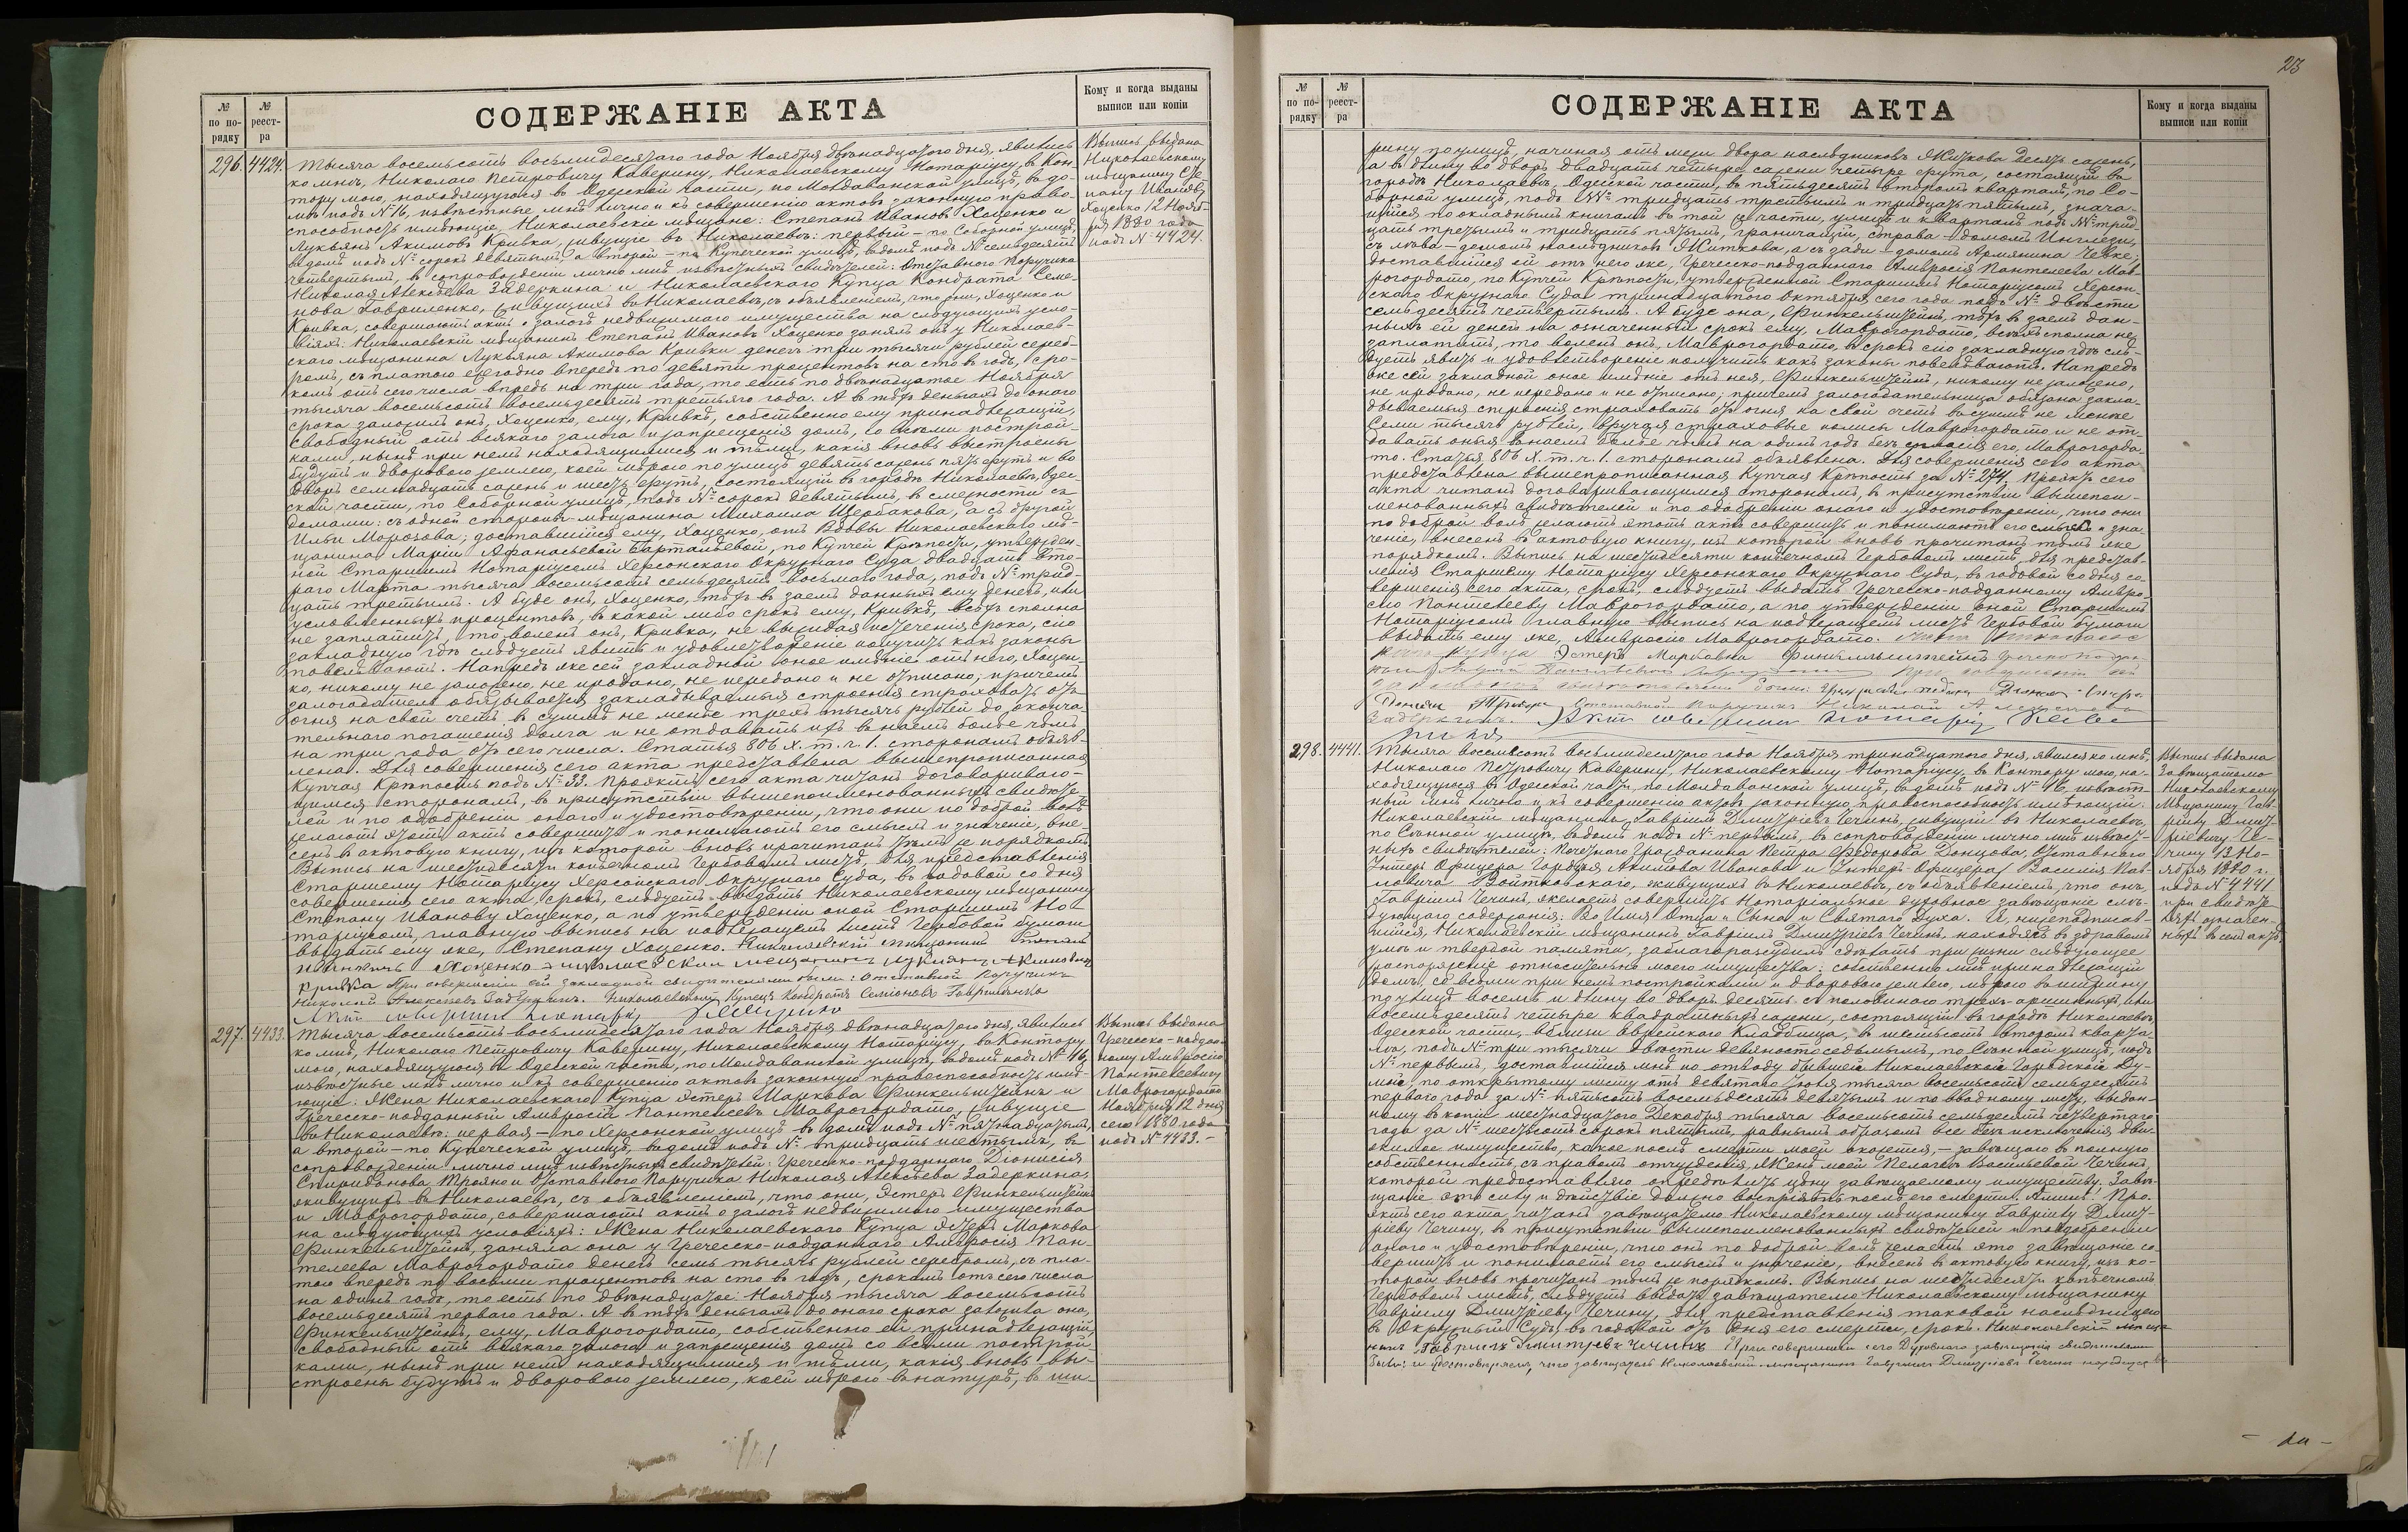 № по по-рядку
№ реест-ра
СОДЕРЖАНІЕ АКТА
Кому и когда выданы выписи или копіи
296. 4424. Тысяча восемьсотъ восьмидесятаго года Ноября двѣнадцатаго дня, явились
ко мнѣ, Николаю Петровичу Каверину, Николаевскому Нотаріусу, въ Кон-
тору мою, находящуюся въ Одесской части, по Молдаванской улицѣ, въ до-
мѣ подъ №16, извѣстные мнѣ лично и къ совершенію актовъ законную право-
способность имѣющіе, Николаевскіе мѣщане: Степанъ Ивановъ Хоценко и
Лукьянъ Акимовъ Кривка, живущіе въ Николаевѣ: первый – по Соборной улицѣ,
въ домѣ подъ № сорокъ девятымъ, а второй – по Купеческой улицѣ, въ домѣ подъ № семьдесятъ
четвертымъ, въ сопровожденіи лично мнѣ извѣстныхъ свидѣтелей: Отставного Поручика
Николая Алексѣева Задеркина и Николаевскаго Купца Кондрата Семе-
нова Гавриленко, живущихъ въ Николаевѣ, съ объявленіемъ, что они, Хоценко и
Кривка, совершаютъ актъ о залогѣ недвижимаго имущества на слѣдующихъ усло-
віяхъ: Николаевскій мѣщанинъ Степанъ Ивановъ Хоценко занялъ онъ у Николаев-
скаго мѣщанина Лукьяна Акимова Кривки денегъ три тысячи рублей сереб-
ромъ, съ платою ежегодно впередъ по девяти процентовъ на сто въ годъ, сро-
комъ отъ сего числа впредь на три года, то есть по двѣнадцатое Ноября
тысяча восемьсотъ восемьдесятъ третьяго года. А въ тѣхъ деньгахъ до онаго
срока заложилъ онъ, Хоценко, ему, Кривкѣ, собственно ему принадлежащій,
свободный отъ всякаго залога и запрещенія домъ, со всѣми построй-
ками, нынѣ при немъ находящимися и тѣми, какія вновь выстроены
будутъ и дворовою землею, коей мѣрою по улицѣ девять сажень пять футъ и во
дворъ семнадцать сажень и шесть футъ, состоящій въ городѣ Николаевѣ, Одес-
ской части, по Соборной улицѣ, подъ № сорокъ девятымъ, въ смежности съ
домами: съ одной стороны – мѣщанина Михаила Щербакова, а съ другой
Ильи Морозова; доставшійся ему, Хоценко, отъ Вдовы Николаевскаго мѣ-
щанина Маріи Афанасьевой Барталѣевой, по Купчей Крѣпости, утвержден-
ной Старшимъ Нотаріусомъ Херсонскаго Окружнаго Суда двадцать вто-
раго Марта тысяча восемьсотъ семьдесятъ восьмаго года, подъ № трид-
цать третьимъ. А буде онъ, Хоценко, тѣхъ въ заемъ данныхъ ему денегъ, или
условленныхъ процентовъ, въ какой либо срокъ ему, Кривкѣ, всѣхъ сполна
не заплатитъ, то воленъ онъ, Кривка, не выжидая истеченія срока, сію
закладную гдѣ слѣдуетъ явить и удовлетвореніе получить какъ законы
повелѣваютъ. Напредь же сей закладной оное имѣніе отъ него, Хоцен-
ко, никому не заложено, не продано, не передано и не отписано; причемъ
залогодатель обязывается закладываемыя строенія страховать отъ
огня на свой счетъ въ суммѣ не менѣе трехъ тысячъ рублей до оконча-
тельнаго погашенія долга и не отдавать ихъ въ наемъ болѣе чѣмъ
на три года отъ сего числа. Статья 806 X. т. ч. 1. сторонамъ объяв-
лена. Для совершенія сего акта представлена вышепрописанная
Купчая Крѣпость подъ №33. Проэктъ сего акта читанъ договариваю-
щимся сторонамъ, въ присутствіи вышепоименованныхъ свидѣте-
лей и по одобреніи онаго и удостовѣреніи, что они по доброй волѣ
желаютъ этотъ актъ совершить и понимаютъ его смыслъ и значеніе, вне-
сенъ въ актовую книгу, изъ которой вновь прочитанъ тѣмъ же порядкомъ.
Выпись на шестидесяти копѣечномъ Гербовомъ листѣ, для представленія
Старшему Нотаріусу Херсонскаго Окружнаго Суда, въ годовой со дня
совершенія сего акта, срокъ, слѣдуетъ выдать Николаевскому мѣщанину
Степану Иванову Хоценко, а по утвержденіи оной Старшимъ Но-
таріусомъ, главную выпись на надлежащемъ листѣ Гербовой бумаги
выдать ему же, Степану Хоценко. Николаевскій мѣщанинъ Степанъ
Хоценко
Кривка При совершеніи сей закладной свидѣтелями были: Отставной Поручикъ
Николай Алексѣевъ Задеркинъ. Николаевскій Купецъ Кондратъ Семіоновъ Гавриленко
Актъ совершилъ Нотаріусъ
Выпись выдана
Николаевскому
мѣщанину Сте-
пану Иванову
Хоценко 12 Нояб-
ря 1880 года
подъ № 4424.
297. 4433. Тысяча восемьсотъ восьмидесятаго года Ноября двѣнадцатаго дня, явились
ко мнѣ, Николаю Петровичу Каверину, Николаевскому Нотаріусу, въ Контору
мою, находящуюся въ Одесской части, по Молдаванской улицѣ, въ домѣ подъ №16,
извѣстные мнѣ лично и къ совершенію актовъ законную правоспособность имѣ-
ющіе: Жена Николаевскаго Купца Эстеръ Маркова Финкельштейнъ и
Греческо-подданный Амвросій Пантелеевъ Маврогордато, живущіе
въ Николаевѣ: первая – по Херсонской улицѣ, въ домѣ подъ № пятнадцатымъ,
а второй – по Купеческой улицѣ, въ домѣ подъ № тридцать шестымъ, въ
сопровожденіи лично мнѣ извѣстныхъ свидѣтелей: Греческо-подданнаго Діонисія
Спиридонова Трояно и Отставного Поручика Николая Алексѣева Задеркина,
живущихъ въ Николаевѣ, съ объявленіемъ, что они, Эстеръ Финкельштейнъ
и Маврогордато, совершаютъ актъ о залогѣ недвижимаго имущества
на слѣдующихъ условіяхъ: Жена Николаевскаго Купца Эстеръ Маркова
Финкельштейнъ, заняла она у Греческо-подданнаго Амвросія Пан-
телеева Маврогордато денегъ семь тысячъ рублей серебромъ, съ пла-
тою впередъ по восьми процентовъ на сто въ годъ, срокомъ отъ сего числа
на одинъ годъ, то есть по двѣнадцатое Ноября тысяча восемьсотъ
восемьдесятъ перваго года. А въ тѣхъ деньгахъ до онаго срока заложила она,
Финкельштейнъ, ему, Маврогордато, собственно ей принадлежащій,
свободный отъ всякаго залога и запрещенія домъ со всѣми построй-
ками, нынѣ при немъ находящимися и тѣми, какія вновь вы-
строены будутъ и дворовою землею, коей мѣрою въ натурѣ, въ ши-
Выпись выдана
Греческо-поддан-
ному Амвросію
Пантелеевичу
Маврогордато
Ноября 12 дня
сего 1880 года
подъ № 4433.–
23
№ по по-рядку
№ реест-ра
СОДЕРЖАНІЕ АКТА
Кому и когда выданы выписи или копіи
рину по улицѣ, начиная отъ межи двора наслѣдниковъ Житкова десять сажень,
а въ длину во дворъ двадцать четыре сажени четыре фута, состоящій въ
городѣ Николаевѣ, Одесской части, въ пятьдесятъ второмъ кварталѣ, по Со-
борной улицѣ, подъ №№ тридцать третьимъ и тридцать пятымъ, знача-
щійся по окладнымъ книгамъ въ той же части, улицѣ и кварталѣ подъ №№ трид-
цать третьимъ и тридцать пятымъ, граничащій, справа – домомъ Инглези,
съ лѣва – домомъ наслѣдниковъ Житкова, а съ зади – домомъ Армянина Чевке;
доставшійся ей отъ него же, Греческо-подданнаго Амвросія Пантелеева Мав-
рогордато, по Купчей Крѣпости, утвержденной Старшимъ Нотаріусомъ Херсон-
скаго Окружнаго Суда тринадцатаго Октября сего года подъ № двѣсти
семьдесятъ четвертымъ. А буде она, Финкельштейнъ, тѣхъ въ заемъ дан-
ныхъ ей денегъ на означенный срокъ ему, Маврогордато, всѣхъ сполна не
заплатитъ, то воленъ онъ, Маврогордато, въ срокъ сію закладную гдѣ слѣ-
дуетъ явить и удовлетвореніе получить какъ законы повелѣваютъ. Напредь
же сей закладной оное имѣніе отъ нея, Финкельштейнъ, никому не заложено,
не продано, не передано и не отписано; причемъ залогодательница обязана закла-
дываемыя строенія страховать отъ огня на свой счетъ въ суммѣ не менѣе
Семи тысячъ рублей, вручая страховые полисы Маврогордато и не от-
давать оныя въ наемъ болѣе чѣмъ на одинъ годъ безъ согласія его, Маврогорда-
то. Статья 806 X. т. ч. 1. сторонамъ объявлена. Для совершенія сего акта
представлена вышепрописанная Купчая Крѣпость за № 274. Проэктъ сего
акта читанъ договаривающимся сторонамъ, въ присутствіи вышепои-
менованныхъ свидѣтелей и по одобреніи онаго и удостовѣреніи, что они
по доброй волѣ желаютъ этотъ актъ совершить и понимаютъ его смыслъ и зна-
ченіе, внесенъ въ актовую книгу, изъ которой вновь прочитанъ тѣмъ же
порядкомъ. Выпись на шестидесяти копѣечномъ Гербовомъ листѣ, для представ-
ленія Старшему Нотаріусу Херсонскаго Окружнаго Суда, въ годовой со дня со-
вершенія сего акта, срокъ, слѣдуетъ выдать Греческо-подданному Амвро-
сію Пантелееву Маврогордато, а по утвержденіи оной Старшимъ
Нотаріусомъ главную выпись на надлежащемъ листѣ Гербовой бумаги
выдать ему же, Амвросію Маврогордато.
Купца Эстеръ Марковна Финкельштейнъ
Отставной Поручикъ Николай Алексѣевъ
Задеркинъ. Актъ совершилъ Нотаріусъ
298. 4441. Тысяча восемьсотъ восьмидесятаго года Ноября тринадцатаго дня, явился ко мнѣ,
Николаю Петровичу Каверину, Николаевскому Нотаріусу, въ Контору мою, на-
ходящуюся въ Одесской части, по Молдаванской улицѣ, въ домѣ подъ № 16, извѣст-
ный мнѣ лично и къ совершенію актовъ законную правоспособность имѣющій:
Николаевскій мѣщанинъ Гавріилъ Дмитріевъ Чечинъ, живущій въ Николаевѣ,
по Сѣнной улицѣ, въ домѣ подъ № первымъ, въ сопровожденіи лично мнѣ извѣст-
ныхъ свидѣтелей: Почетнаго Гражданина Петра Федорова Донцова, Отставного
Унтеръ Офицера Гордѣя Акимова Иванова и Унтеръ-Офицера Василія Пав-
ловича Войтковскаго, живущихъ въ Николаевѣ, съ объявленіемъ, что онъ,
Гавріилъ Чечинъ, желаетъ совершить Нотаріальное духовное завѣщаніе слѣ-
дующаго содержанія: Во Имя Отца и Сына и Святаго Духа. Я, нижеподписав-
шійся, Николаевскій мѣщанинъ Гавріилъ Дмитріевъ Чечинъ, находясь въ здравомъ
умѣ и твердой памяти, заблагоразсудилъ сдѣлать при жизни слѣдующее
распоряженіе относительно моего имущества: собственно мнѣ принадлежащій
домъ, со всѣми при немъ постройками и дворовою землею, мѣрою въ ширину
по улицѣ восемь и длину во дворъ десять съ половиною трехъ-аршинныхъ, или
восемьдесятъ четыре квадратныхъ сажени, состоящій въ городѣ Николаевѣ,
Одесской части, вблизи Еврейскаго Кладбища, въ шестьсотъ второмъ кварта-
лѣ, подъ № три тысячи двѣсти девяносто седьмымъ, по Сѣнной улицѣ, подъ
№ первымъ, доставшійся мнѣ по отводу бывшей Николаевской Городской Ду-
мой по открытому листу отъ девятаго Іюля тысяча восемьсотъ семьдесятъ
перваго года за № пятьсотъ восемьдесятъ девятымъ и по вводному листу, выдан-
ному въ копіи шестнадцатаго Декабря тысяча восемьсотъ семьдесятъ четвертаго
года за № шестьсотъ сорокъ пятымъ, равнымъ образомъ все безъ исключенія дви-
жимое имущество, какое послѣ смерти моей окажется, – завѣщаю въ полную
собственность, съ правомъ отчужденія, Женѣ моей Пелагеѣ Васильевой Чечиной,
которой предоставляю опредѣлить цѣну завѣщаемому имуществу. Завѣ-
щаніе это силу и дѣйствіе должно воспріять послѣ его смерти. Аминь! Про-
эктъ сего акта читанъ завѣщателю Николаевскому мѣщанину Гавріилу Дмит-
ріеву Чечину, въ присутствіи вышепоименованныхъ свидѣтелей и по одобреніи
онаго и удостовѣреніи, что онъ по доброй волѣ желаетъ это завѣщаніе со-
вершить и понимаетъ его смыслъ и значеніе, внесенъ въ актовую книгу, изъ ко-
торой вновь прочитанъ тѣмъ же порядкомъ. Выпись на шестидесяти копѣечномъ
Гербовомъ листѣ, слѣдуетъ выдать завѣщателю Николаевскому мѣщанину
Гавріилу Дмитріеву Чечину, для представленія таковой наслѣдницею
въ Окружный Судъ, въ годовой отъ дня его смерти, срокъ. Николаевскій мѣща-
нинъ Гаврилъ Дмитревъ Чечинъ При совершеніи сего Духовнаго завѣщанія свидѣтелями
были и удостовѣряемъ, что завѣщатель Николаевскій мѣщанинъ Гавріилъ Дмитріевъ Чечинъ находится въ
Выпись выдана
Завѣщателю
Николаевскому
Мѣщанину Гав-
ріилу Дмит-
ріевичу Че-
чину 13 Но-
ября 1880 г.
подъ № 4441
при свидѣте-
ляхъ означен-
ныхъ въ семъ актѣ